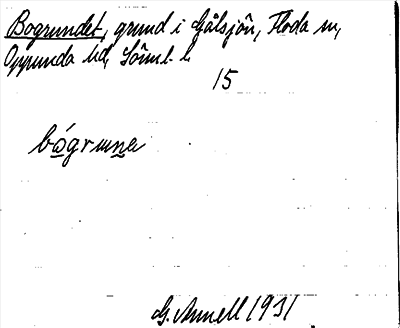 Bogrundet, grund i Gålsjön, Floda sn,
Oppunda hd, Sörml. l.
15
bógruna
G. Annell 1931